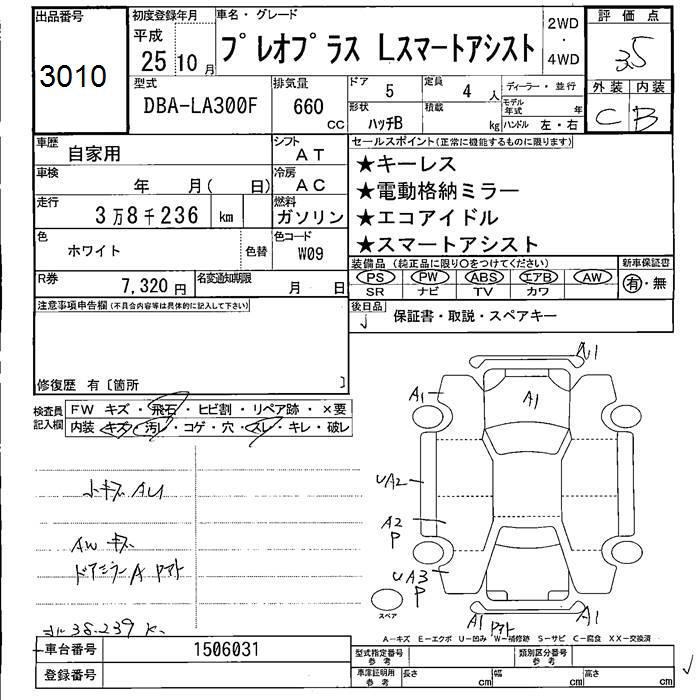 出品番号
3010
初度登録年月
平成
25 10 月
車名・グレード
プレオプラス Lスマートアシスト
2WD
・
4WD
評価点
3.5
外装 内装
C B
型式
DBA-LA300F
排気量
660
cc
ドア 5
定員 4 人
形状 ハッチB
積載 kg
ディーラー・並行
モデル年式 年
ハンドル 左・右
車歴 自家用
シフト AT
車検 年 月( 日)
冷房 AC
走行 3万8千236 km
燃料 ガソリン
色 ホワイト
色替
色コード W09
R券 7,320 円
名変通知期限 月 日
セールスポイント(正常に機能するものに限ります)
★キーレス
★電動格納ミラー
★エコアイドル
★スマートアシスト
装備品(純正品に限り○をつけてください)
PS PW ABS エアB AW
SR ナビ TV カワ
新車保証書
有・無
後日品
保証書・取説・スペアキー
注意事項申告欄(不具合内容等は具体的に記入して下さい)
修復歴 有〔箇所 〕
検査員記入欄
FW キズ・飛石・ヒビ割・リペア跡・×要
内装・キズ・汚レ・コゲ・穴・スレ・キレ・破レ
小キズ AU
AW キズ
ドアミラーA ヤマト
38.239 K
A1
A1
A1
UA2
A2
P
UA3
P
A1
A1
スペア
A-キズ E-エクボ U-凹み W-補修跡 S-サビ C-腐食 XX-交換済
車台番号 1506031
登録番号
型式指定番号 参考
類別区分番号 参考
車庫証明用 参考
長さ cm 幅 cm 高さ cm